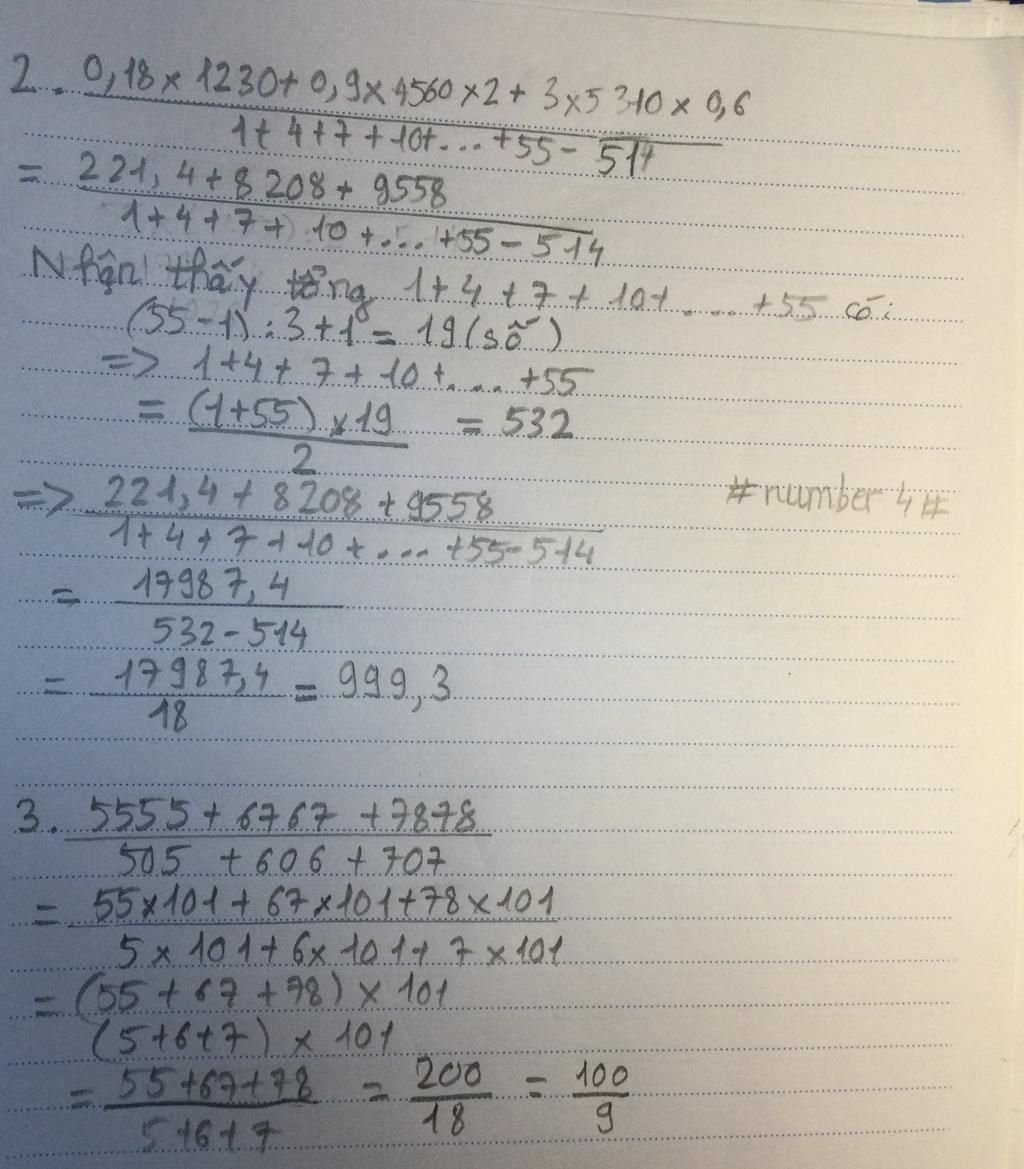 2. 0,18 x 1230 + 0,9 x 4560 x 2 + 3 x 5310 x 0,6
1 + 4 + 7 + 10 + ... + 55 - 514
= 221,4 + 8208 + 9558
1 + 4 + 7 + 10 + ... + 55 - 514
Nhận thấy tổng 1 + 4 + 7 + 10 + .... + 55 có:
(55 - 1) : 3 + 1 = 19 (số)
=> 1 + 4 + 7 + 10 + .... + 55
= (1 + 55) x 19 = 532
2
=> 221,4 + 8208 + 9558
#number 4#
1 + 4 + 7 + 10 + ... + 55 - 514
= 17987,4
532 - 514
= 17987,4 = 999,3
18
3. 5555 + 6767 + 7878
505 + 606 + 707
= 55 x 101 + 67 x 101 + 78 x 101
5 x 101 + 6 x 101 + 7 x 101
= (55 + 67 + 78) x 101
(5 + 6 + 7) x 101
= 55 + 67 + 78 = 200 = 100
5 + 6 + 7 18 9